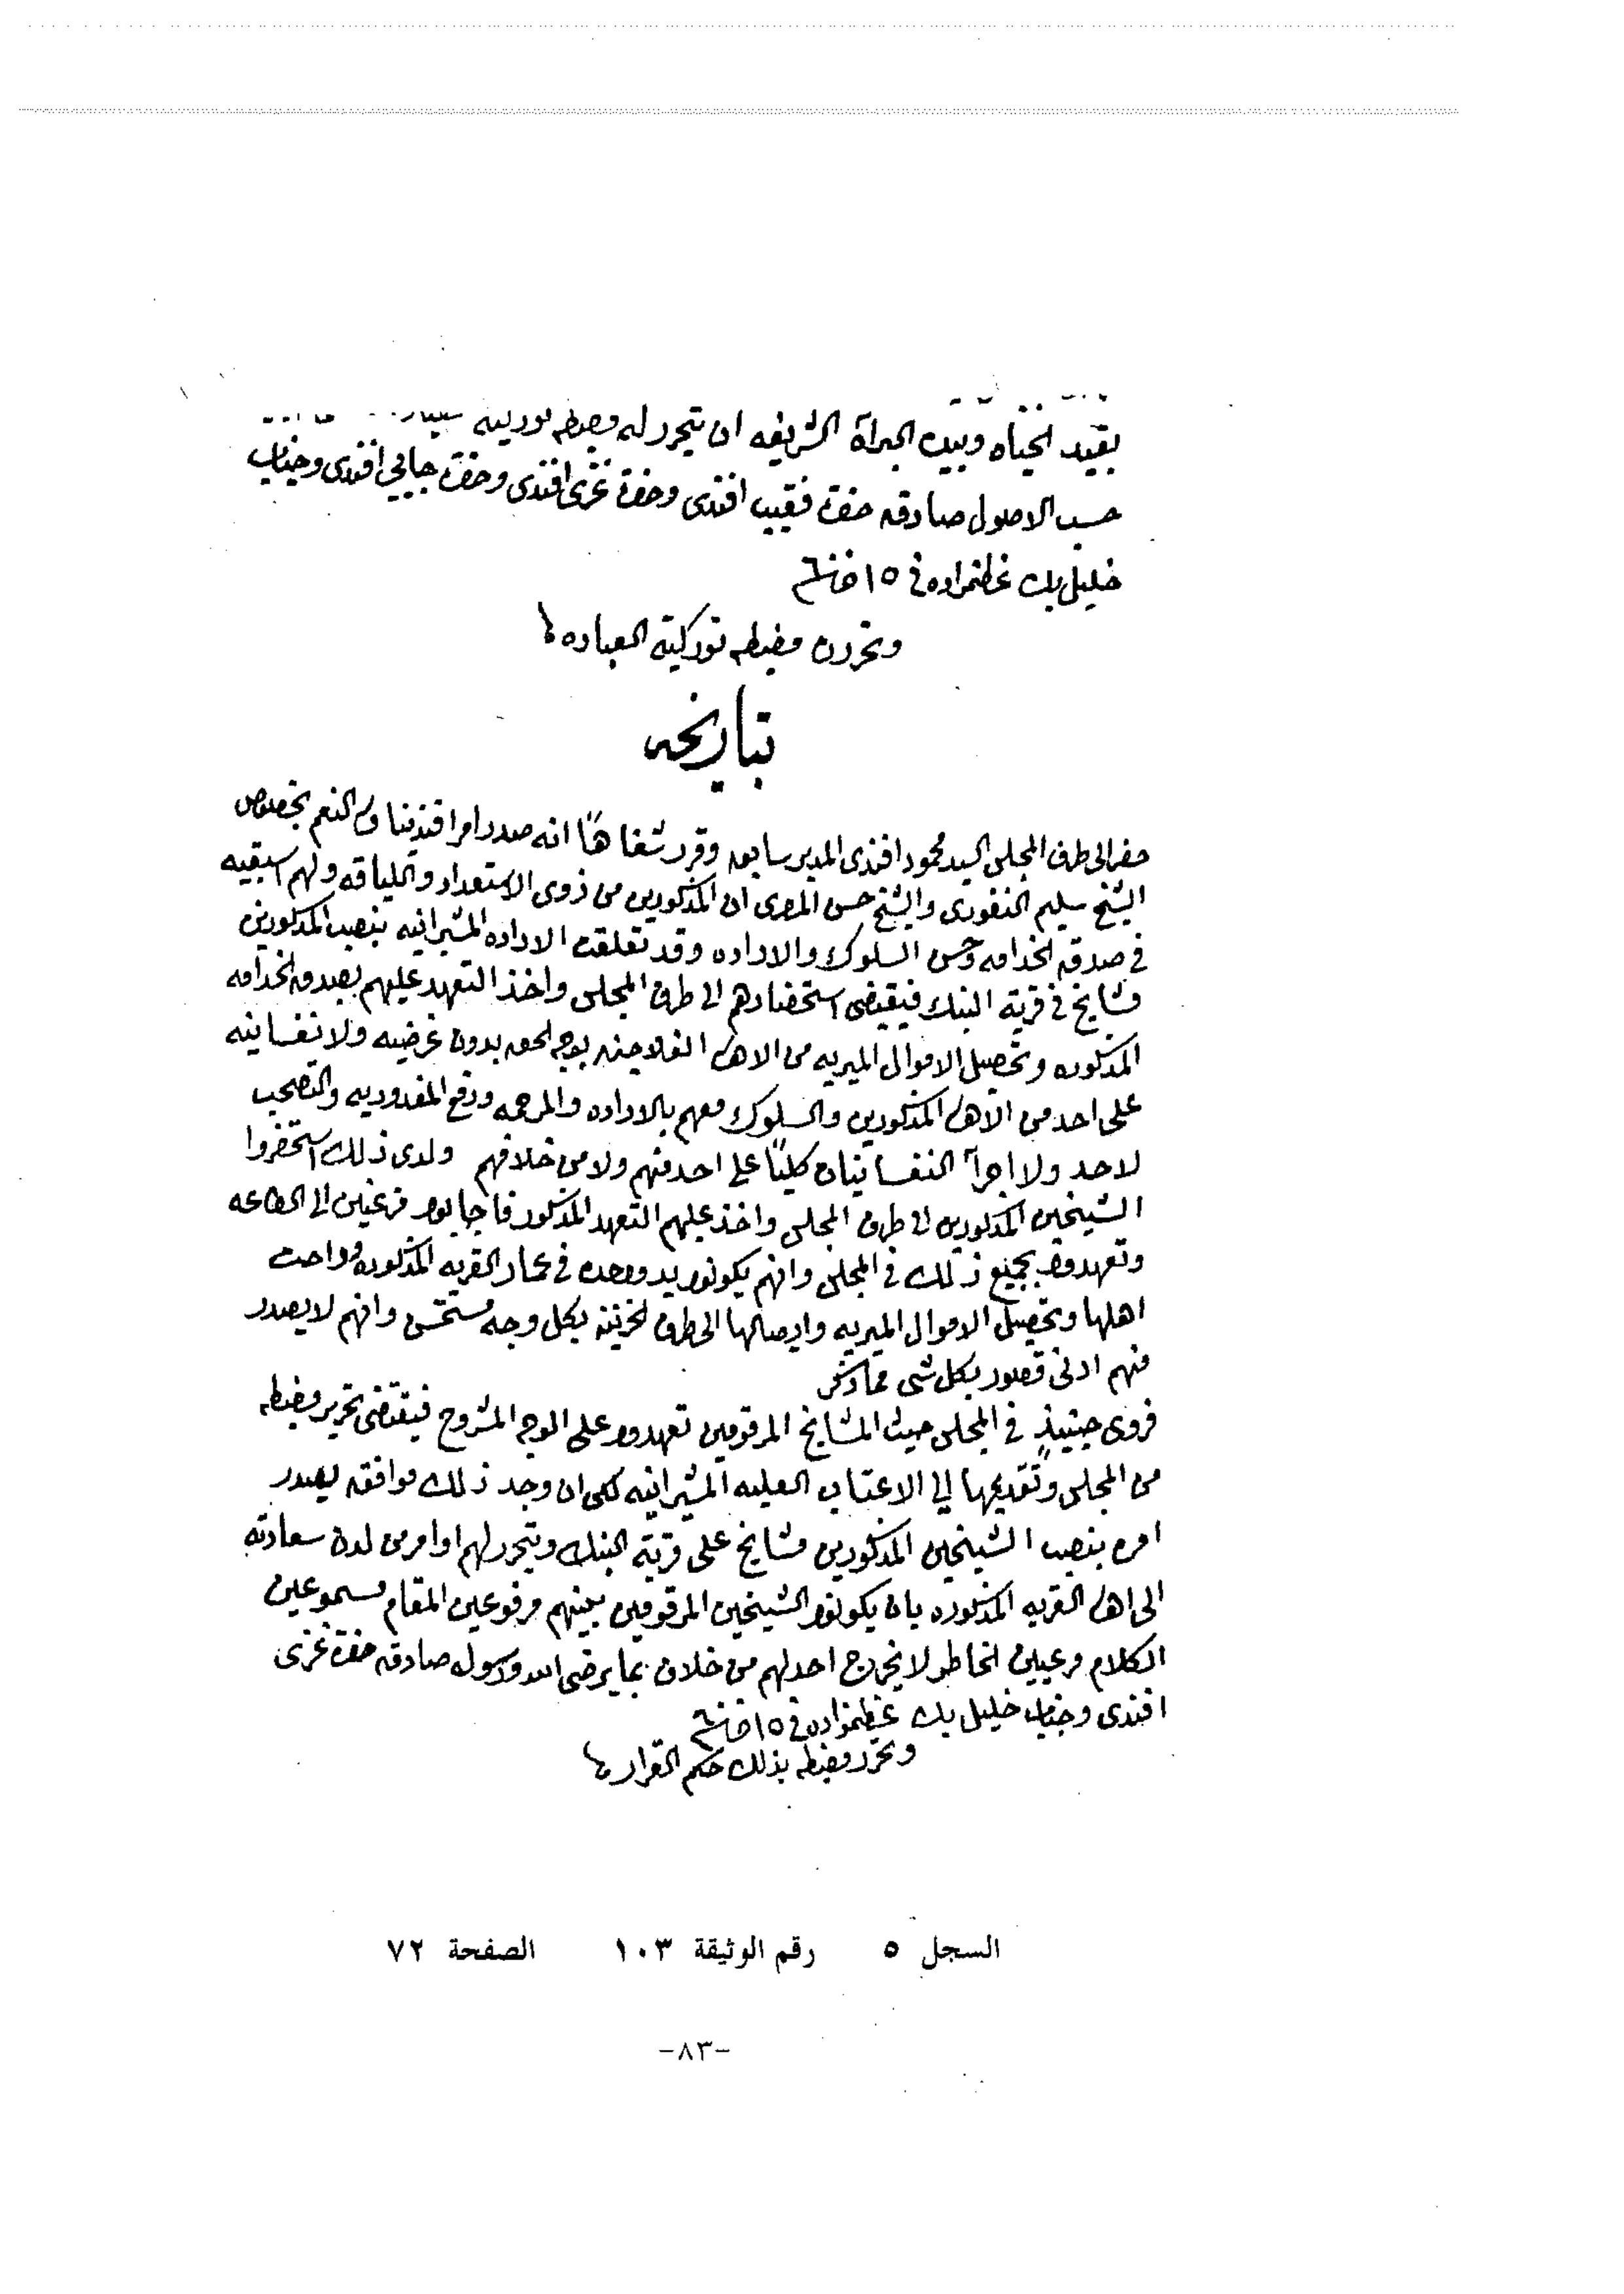 بقيد الحياه وبيده البراة الشريفه ان يتحرر له مضبطه
حسب الاصول صادقه حضرة نقيب افندي وحضرة غزي افندي وحضرة جابي افندي وجناب
خليل بك عظمزاده في ١٥
وتحررت مضبطه توركية العباره
بتاريخه
حضر الى طرف المجلس السيد محمود افندي المدير سابقه وقرر شفاهًا انه صدر امر افندينا ولي النعم بخصوص
الشيخ سليم النفوري والشيخ حسن المصري ان المذكورين من ذوي الاستعداد واللياقه ولهم اسبقيه
في صدقة الخدامه وحسن السلوك والاداره وقد تعلقت الاراده المشيرانيه بنصب المذكورين
مشايخ في قرية النبك فيقتضي استحضارهم الى طرف المجلس واخذ التعهد عليهم بصدوقة الخدامه
المذكوره وتحصيل الاموال الميريه من الاهالي الفلاحيه بوجه الحق بدون غرضيه ولا نفسانيه
على احد من الاهالي المذكورين والسلوك معهم بالاداره والمرحمه ودفع المغدوريه والتصحب
لاحد ولا اجرآ النفسانيات كليًا على احد منهم ولا من خلافهم ولدى ذلك استحضروا
الشيخين المذكورين الى طرف المجلس واخذ عليهم التعهد المذكور فاجابوا مرغبين الى الطاعه
وتعهدوا بجميع ذلك في المجلس وانهم يكونوا يد وحده في عمار القريه المذكوره وراحت
اهلها وتحصيل الاموال الميريه وايصالها الى طرف الخزينه بكل وجه مستحسن وانهم لا يصدر
منهم ادنى قصور بكل شي مما ذكر
فروي حينيذٍ في المجلس حيث المشايخ المرقومين تعهدوا على الوجه المشروح فيقتضي تحرير مضبطه
من المجلس وتقديمها الى الاعتاب العليه المشيرانيه لكي ان وجد ذلك موافقه ليصدر
امره بنصب الشيخين المذكورين مشايخ على قرية النبك ويتحرر لهم اوامر من لدن سعادته
الى اهالي القريه المذكوره بان يكونوا الشيخين المرقومين بينهم مرفوعين المقام مسموعين
الكلام مرعيين الخاطر لا يخرج احد لهم من خلاف بما يرضي الله ورسوله صادقه حضرة غزي
افندي وجناب خليل بك عظمزاده في ١٥
وتحرر مضبطه بذلك حكم القرار
السجل ٥ رقم الوثيقة ١٠٣ الصفحة ٧٢
-٨٣-